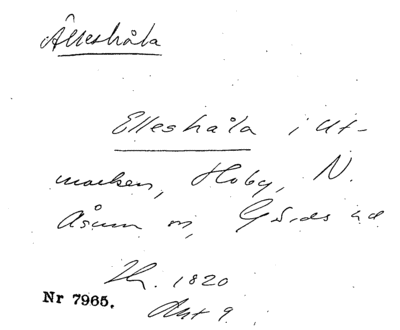 Älleshåla
Elleshåla i Ut-
marken, Hoby, N.
Åsum sn, Gärds hd
1820
Nr 7965. Akt 9.